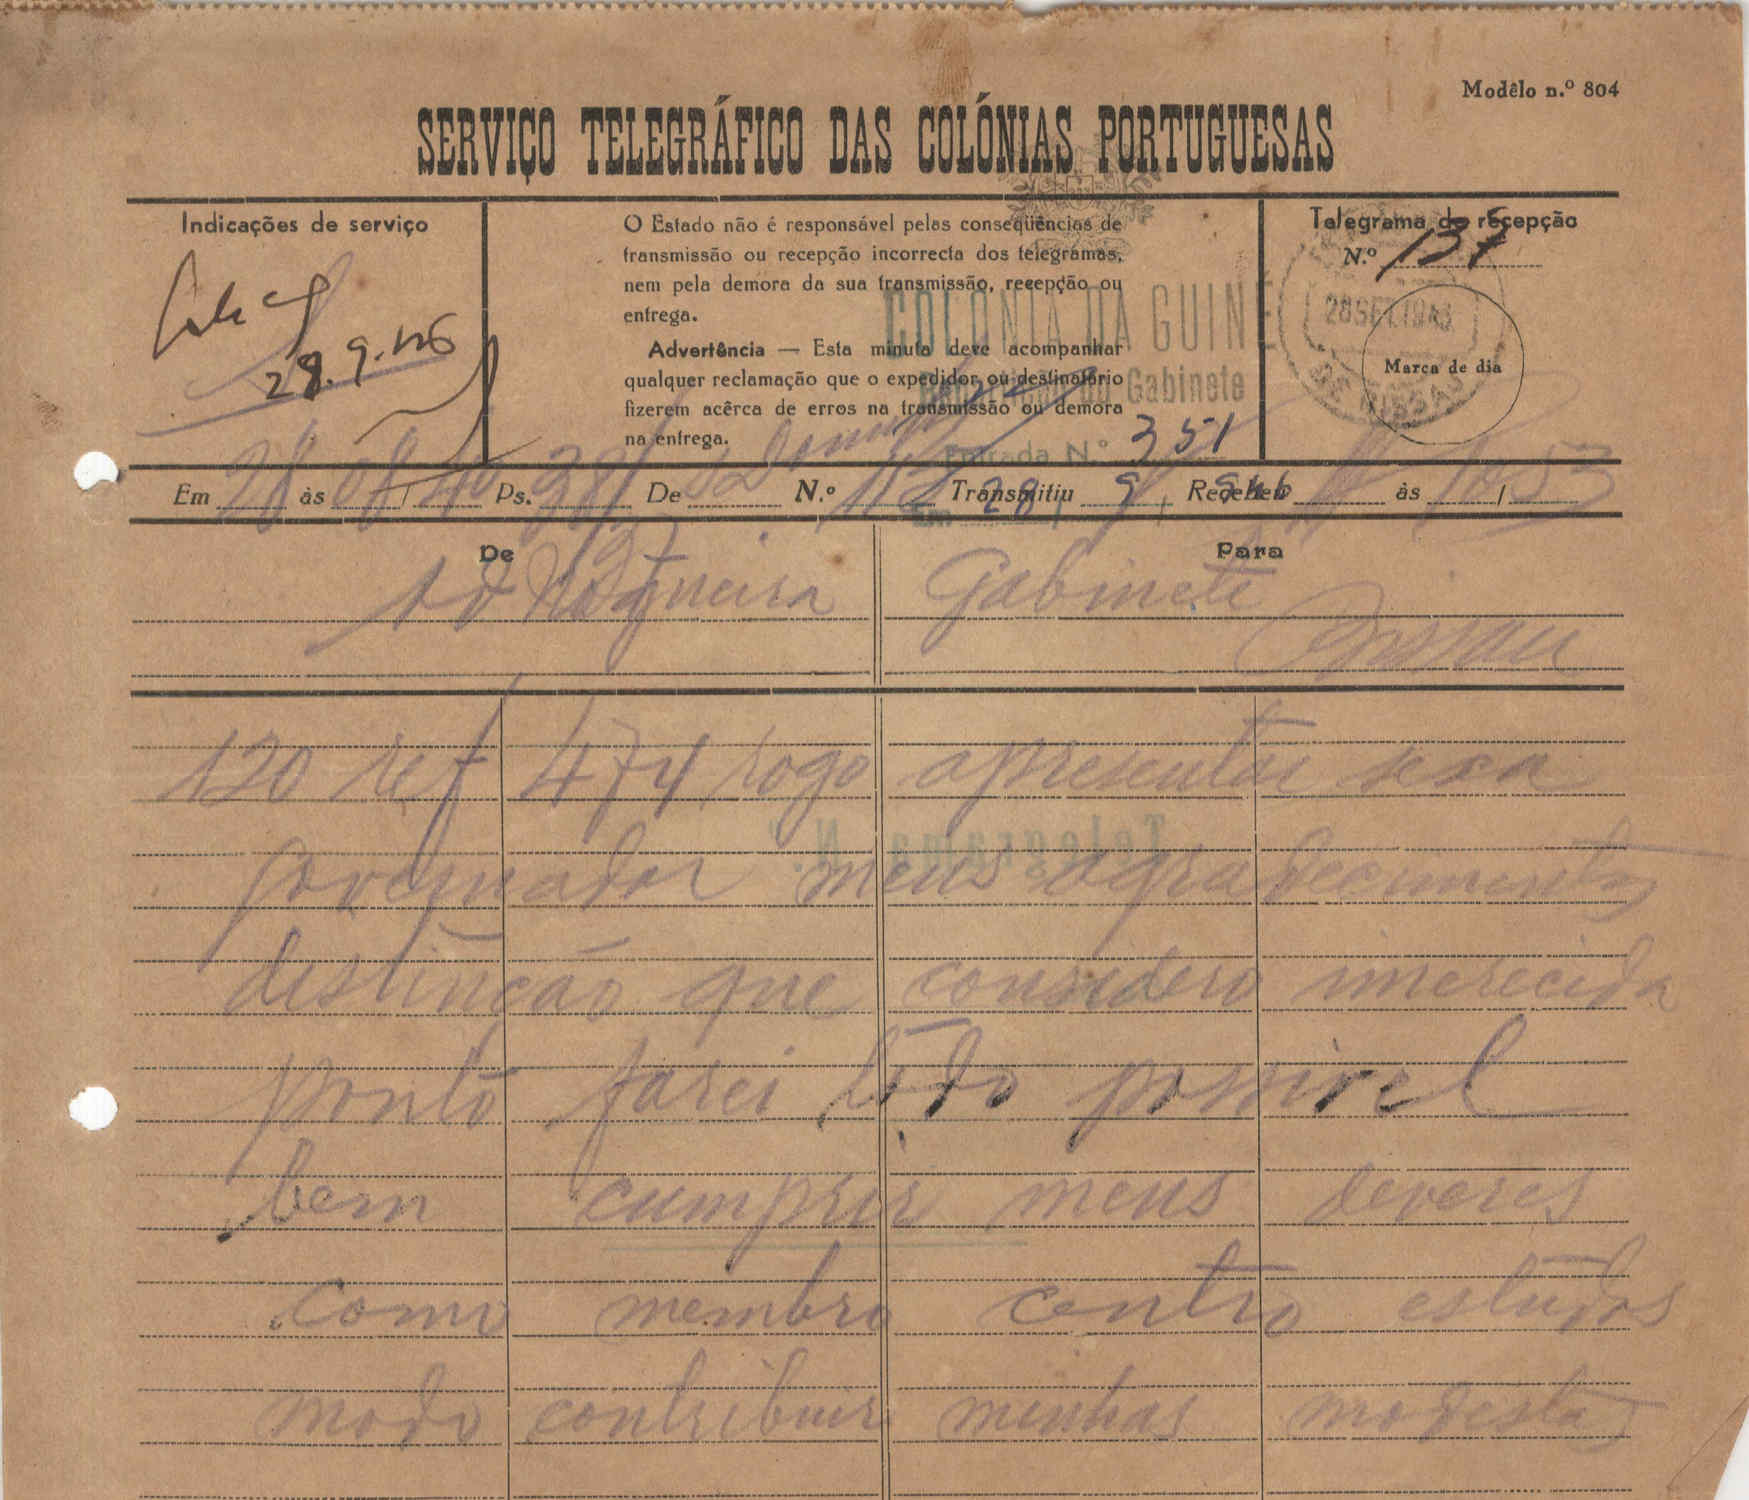 Modêlo n.º 804
SERVIÇO TELEGRÁFICO DAS COLÓNIAS PORTUGUESAS
Indicações de serviço
28.9.46
O Estado não é responsável pelas conseqüências de
transmissão ou recepção incorrecta dos telegramas,
nem pela demora da sua transmissão, recepção ou
entrega.
Advertência — Esta minuta deve acompanhar
qualquer reclamação que o expedidor ou destinatário
fizerem acêrca de erros na transmissão ou demora
na entrega.
COLONIA DA GUINÉ
Gabinete
Entrada N.º 351
Em 28 / 9 / 946
Telegrama de recepção
N.º 137
28 SET. 1946
BISSAU
Marca de dia
Em 28 às / Ps. De N.º Transmitiu Recebeu às /
De
Nogueira
Para
Gabinete
Bissau
120 ref 474 rogo apresentar sexa
governador meus agradecimentos
distinção que considero imerecida
ponto farei todo possivel
bem cumprir meus deveres
como membro centro estudos
modo contribuir minhas modestas
Telegrama N.º